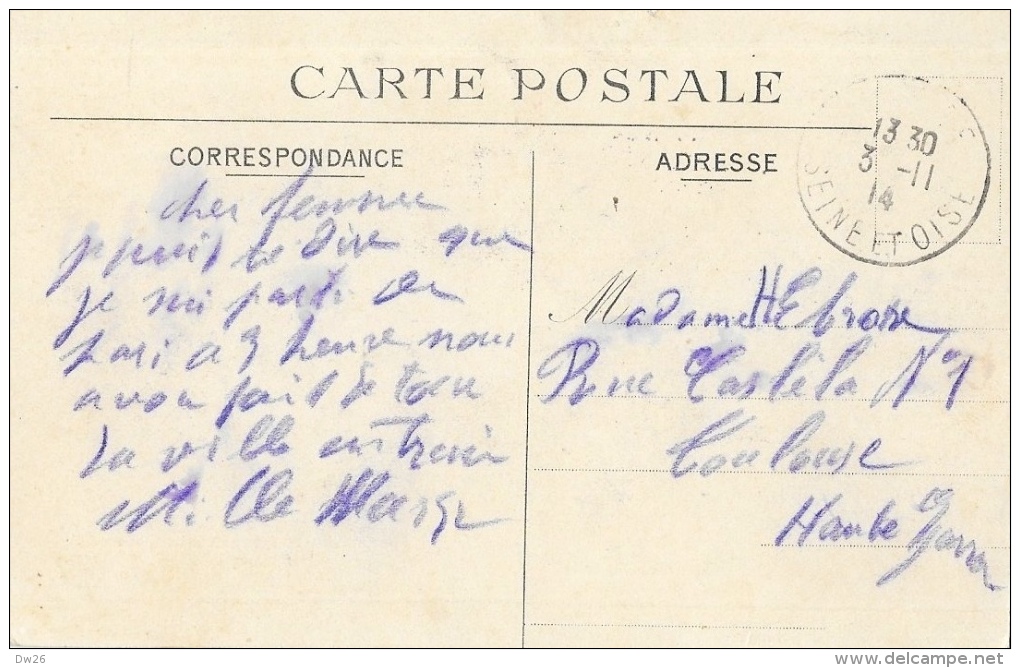 CARTE POSTALE
CORRESPONDANCE
ADRESSE
13 30
3 -11
14
SEINE ET OISE
cher femme
te dire que
je sui parti de
Pari a 9 heure nous
avon fait le tour
La ville en train
Mille
Madame Ebrose
Rue Castela N° 1
Toulouse
Haute Garon
Dw26
www.delcampe.net